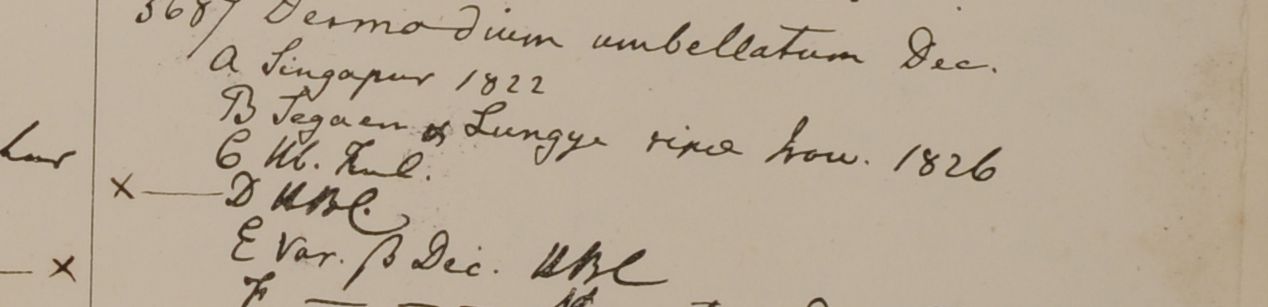 5687 Desmodium umbellatum Dec.
A Singapur 1822
B Segaen & Lungye ripa Irow. 1826
C Hb. Ful.
x — D HBC.
E Var. β Dec. HBC
— x
F